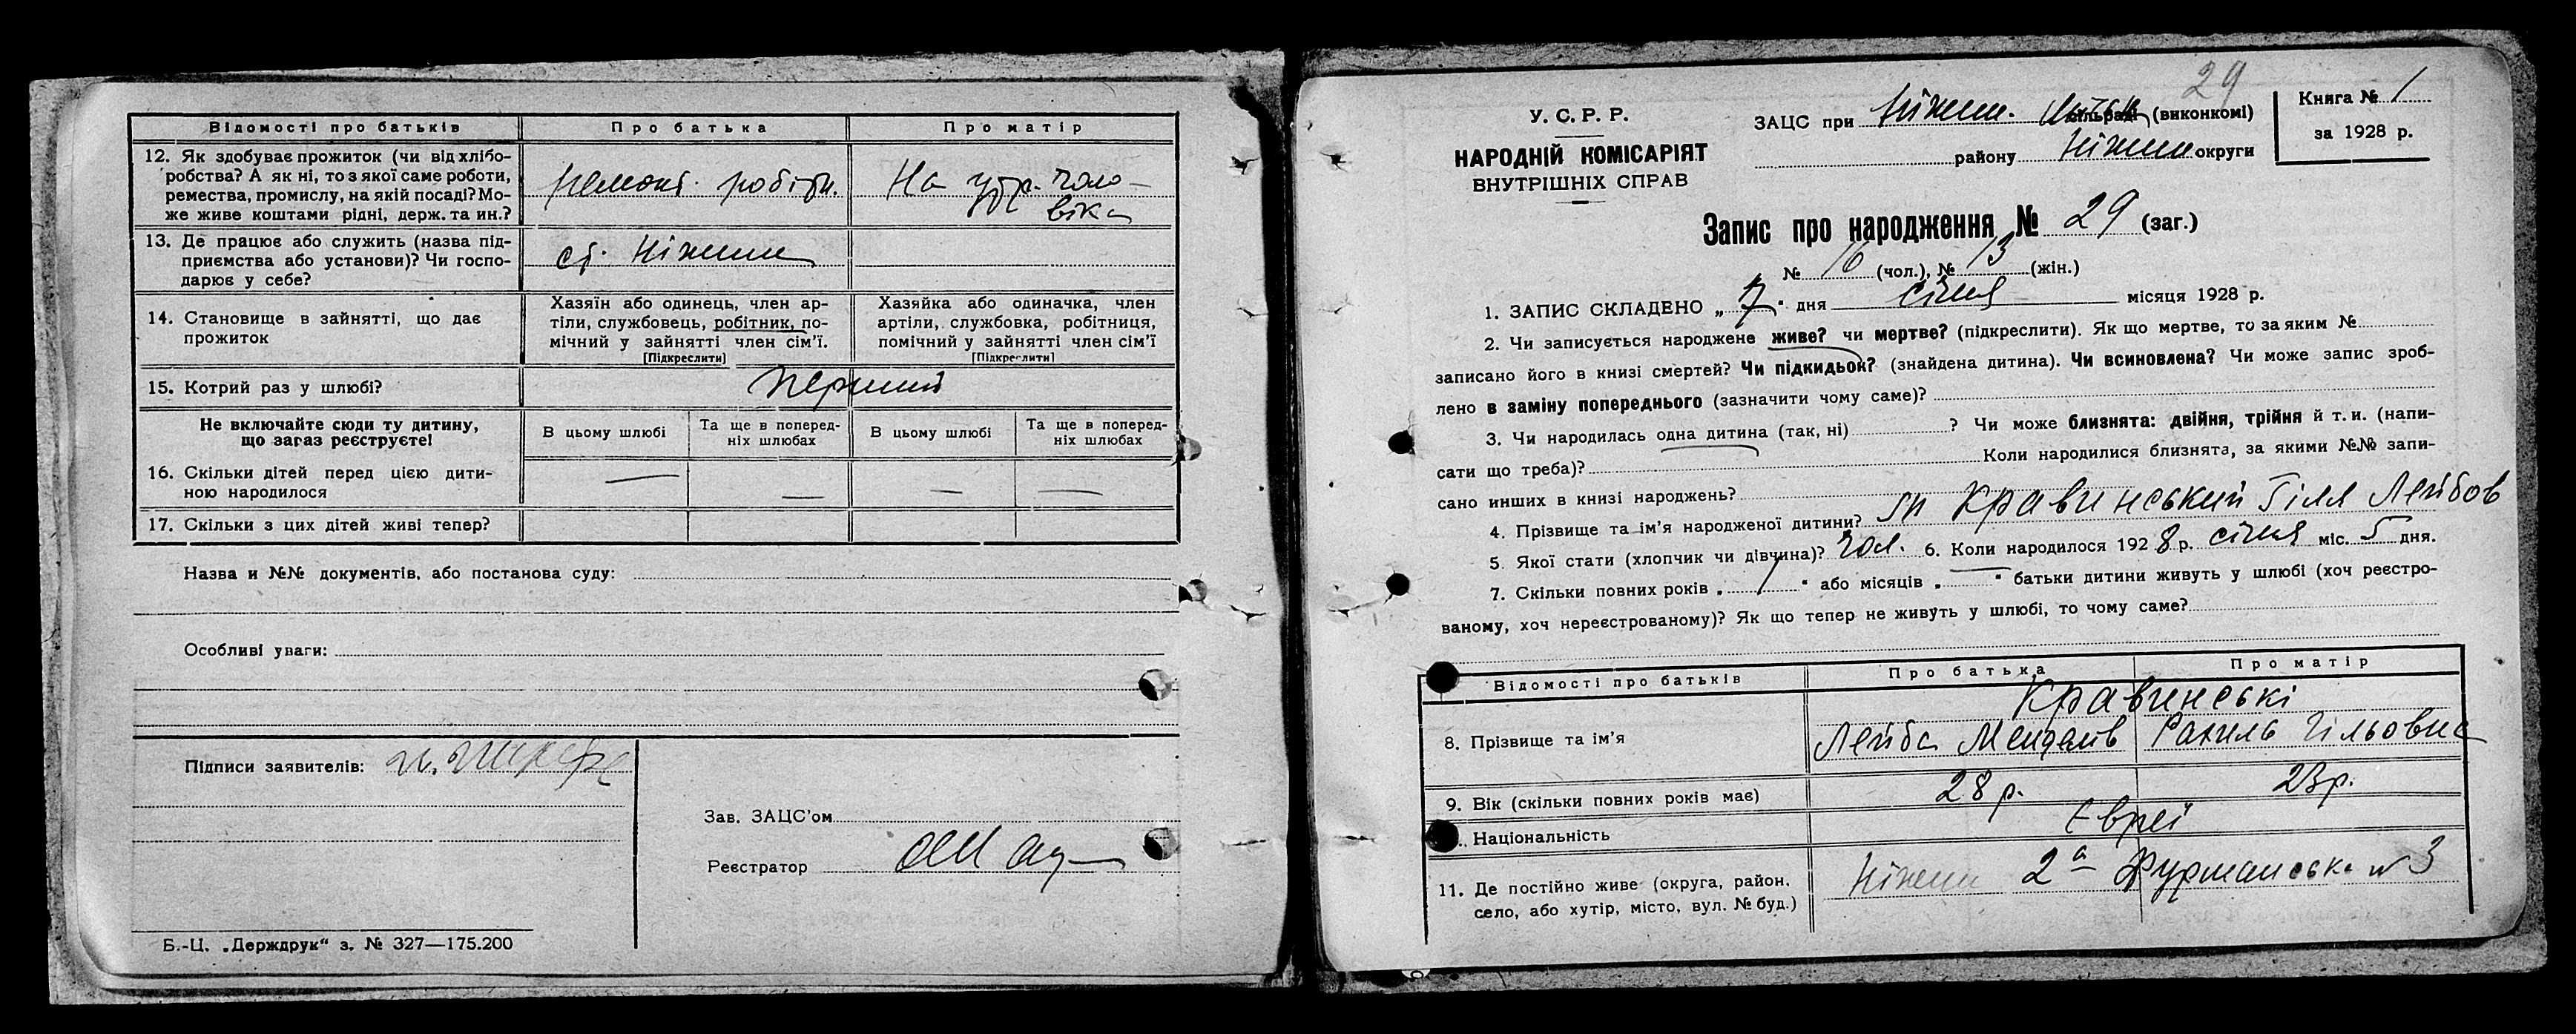 Відомості про батьків Про батька Про матір
12. Як здобуває прожиток (чи від хлібо-
робства? А як ні, то з якої саме роботи,
ремества, промислу, на якій посаді? Мо-
же живе коштами рідні, держ. та ин.?
ремонт. робітн. На утр. чоло-
віка
13. Де працює або служить (назва під-
приємства або установи)? Чи госпо-
дарює у себе?
ст. Ніжин
14. Становище в зайнятті, що дає
прожиток
Хазяїн або одинець, член ар-
тілі, службовець, робітник, по-
мічний у зайнятті член сім'ї.
[Підкреслити]
Хазяйка або одиначка, член
артілі, службовка, робітниця,
помічний у зайнятті член сім'ї
[Підкреслити]
15. Котрий раз у шлюбі? перший
Не включайте сюди ту дитину,
що зараз реєструєте!
В цьому шлюбі
Та ще в поперед-
ніх шлюбах
В цьому шлюбі
Та ще в поперед-
ніх шлюбах
16. Скільки дітей перед цією дити-
ною народилося — — — —
17. Скільки з цих дітей живі тепер?
Назва и №№ документів, або постанова суду:
Особливі уваги:
Підписи заявителів:
Зав. ЗАЦС'ом
Реєстратор
Б.-Ц. „Держдрук“ з. № 327—175.200
29
У. С. Р. Р.
НАРОДНІЙ КОМІСАРІЯТ
ВНУТРІШНІХ СПРАВ
ЗАЦС при Ніжин. сільраді (виконкомі)
району Ніжин округи
Книга № 1
за 1928 р.
Запис про народження № 29 (заг.)
№ 16 (чол.), № 13 (жін.)
1. ЗАПИС СКЛАДЕНО „7“ дня січня місяця 1928 р.
2. Чи записується народжене живе? чи мертве? (підкреслити). Як що мертве, то за яким №
записано його в книзі смертей? Чи підкидьок? (знайдена дитина). Чи всиновлена? Чи може запис зроб-
лено в заміну попереднього (зазначити чому саме)?
3. Чи народилась одна дитина (так, ні) ? Чи може близнята: двійня, трійня й т. и. (напи-
сати що треба)? Коли народилися близнята, за якими №№ запи-
сано инших в книзі народжень?
4. Прізвище та ім'я народженої дитини? Кравинський Гіля Лейбов
5. Якої стати (хлопчик чи дівчина)? чол. 6. Коли народилося 1928 р. січня міс. 5 дня.
7. Скільки повних років „1“ або місяців „ “ батьки дитини живуть у шлюбі (хоч реєстро-
ваному, хоч нереєстрованому)? Як що тепер не живуть у шлюбі, то чому саме?
Відомості про батьків Про батька Про матір
Кравинські
8. Прізвище та ім'я Лейба Менделів Рахиль Гільовна
9. Вік (скільки повних років має) 28 р. 23 р.
Національність Євреї
11. Де постійно живе (округа, район,
село, або хутір, місто, вул. № буд.)
Ніжин 2а Фурманська № 3